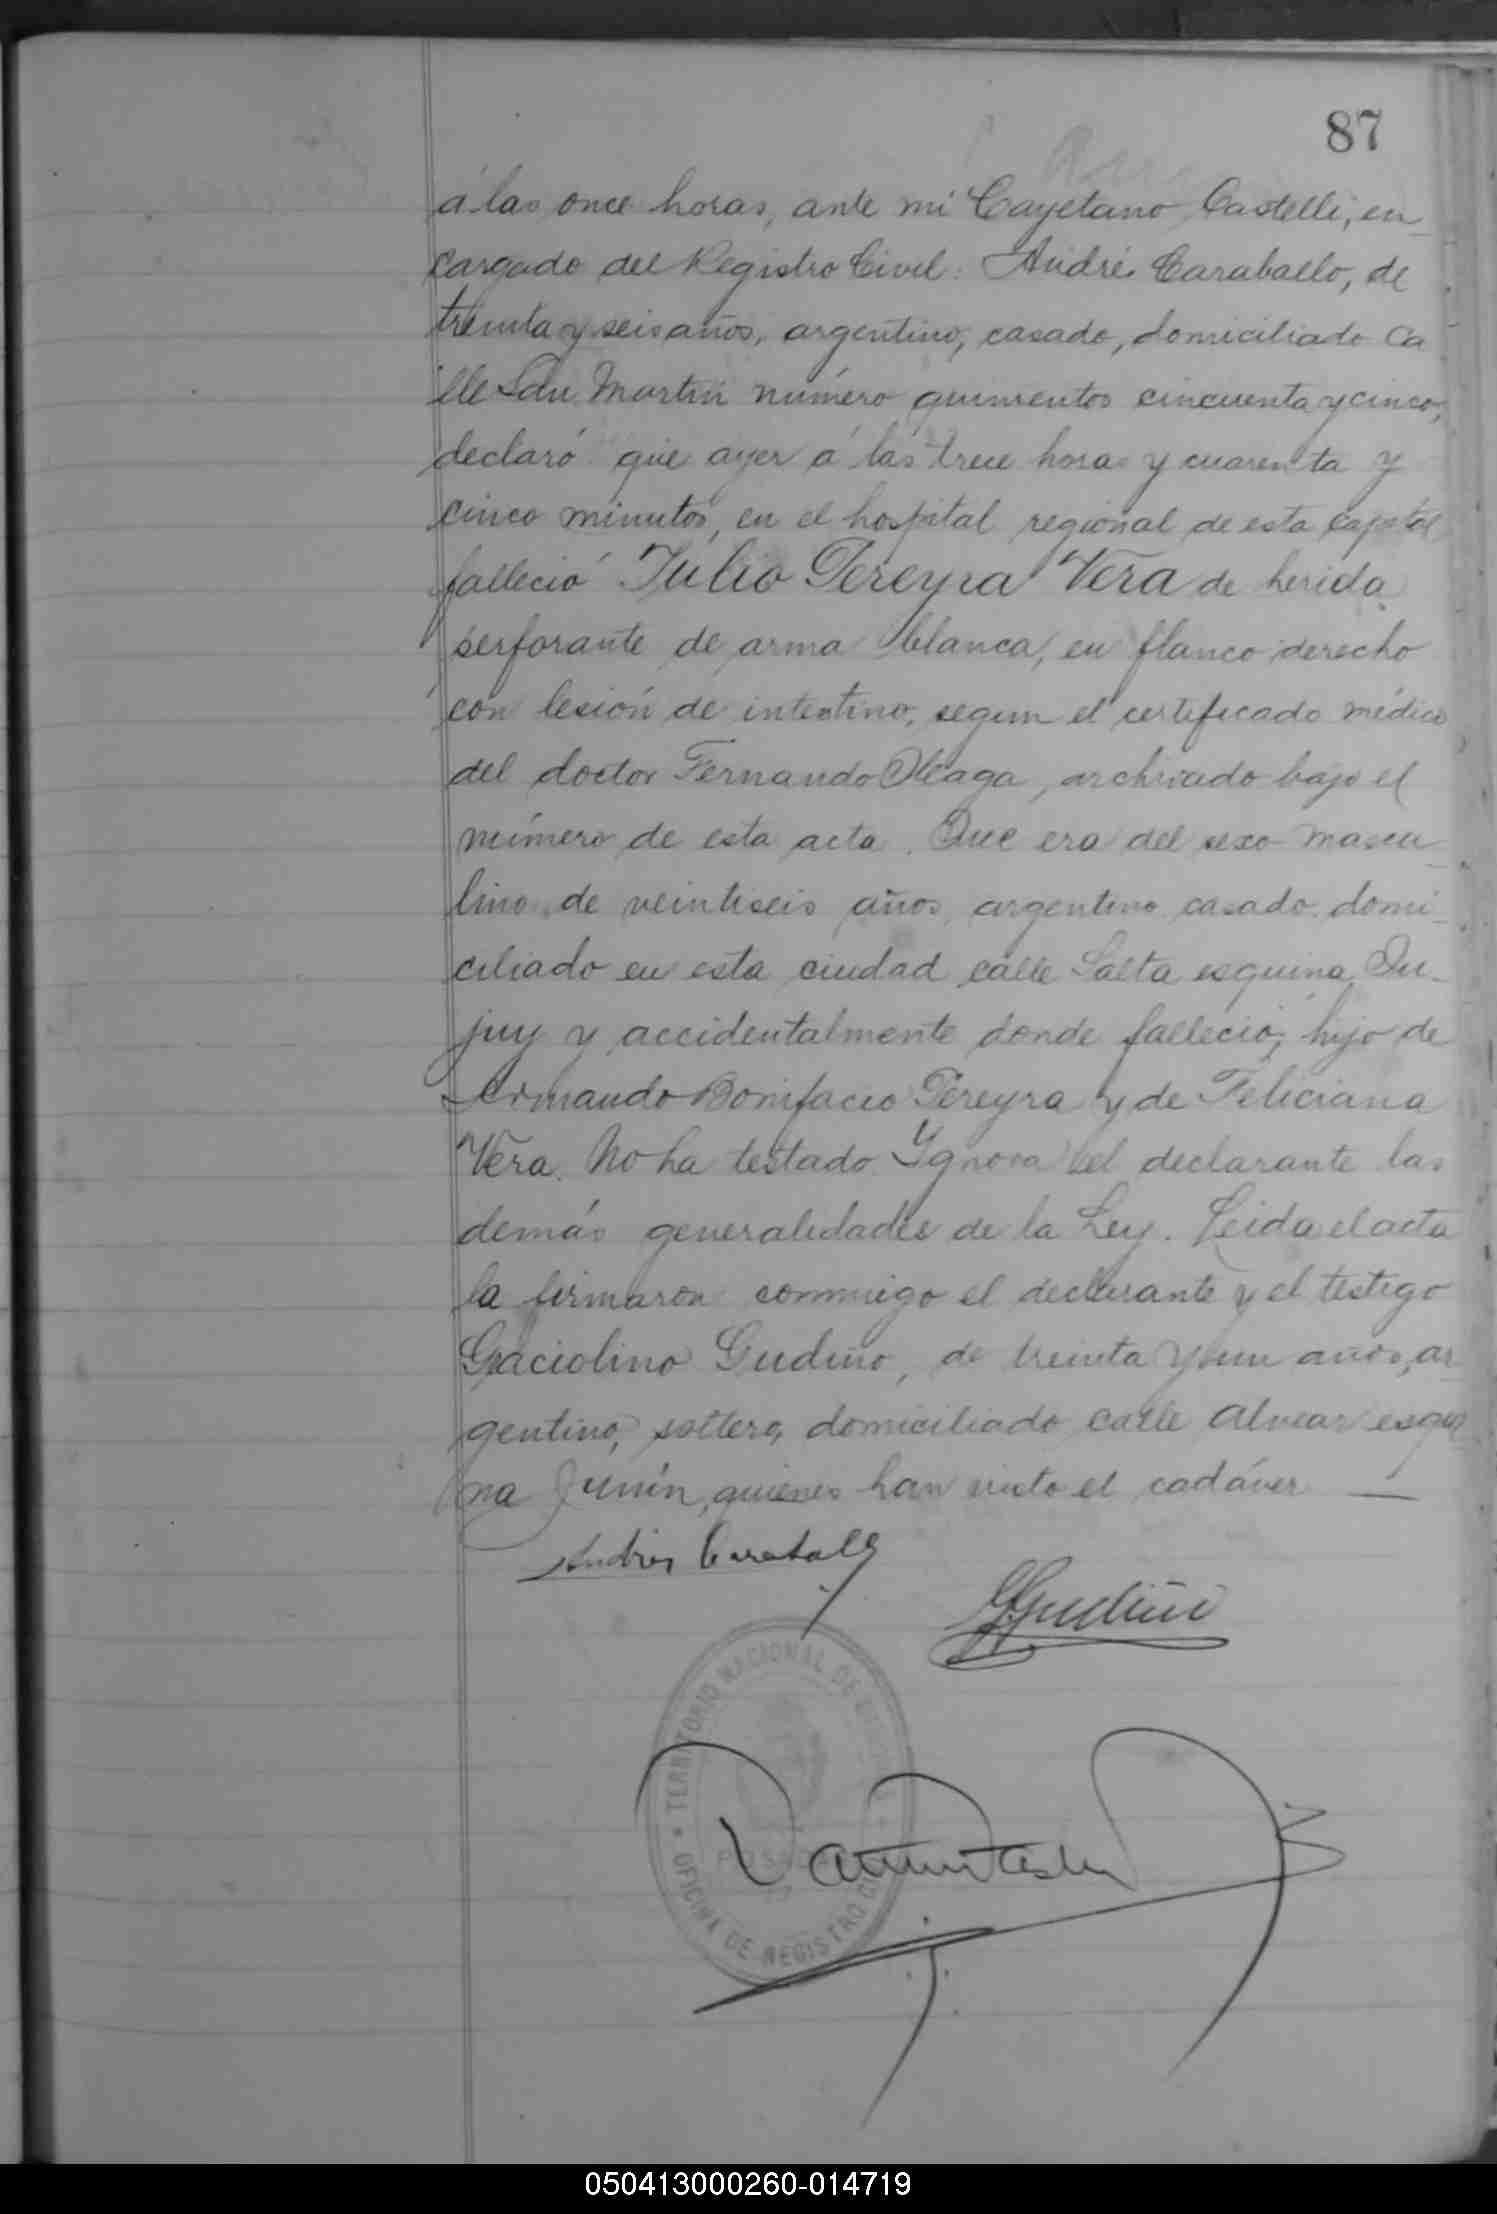 87
á las once horas, ante mi Cayetano Castelli, en-
cargado del Registro Civil: Andrés Caraballo, de
treinta y seis años, argentino, casado, domiciliado ca
lle San Martin número quinientos cincuenta y cinco,
declaró que ayer á las trece horas y cuarenta y
cinco minutos, en el hospital regional de esta capital
falleció Julio Pereyra Vera de herida
perforante de arma blanca, en flanco derecho
con lesión de intestino, segun el certificado médico
del doctor Fernando Oleaga, archivado bajo el
número de esta acta. Que era del sexo mascu-
lino de veintiseis años, argentino casado domi-
ciliado en esta ciudad calle Salta esquina Ju-
juy y accidentalmente donde falleció, hijo de
Armando Bonifacio Pereyra y de Feliciana
Vera. No ha testado. Ygnora el declarante las
demás generalidades de la Ley. Leida el acta
la firmaron conmigo el declarante y el testigo
Graciolino Gudiño, de treinta y un años, ar-
gentino, soltero, domiciliado calle Alvear esqui-
na Junín, quienes han visto el cadáver —
Andres Caraballo
GGudiño
TERRITORIO NACIONAL DE
POSADAS
OFICINA DE REGISTRO CIVIL
050413000260-014719